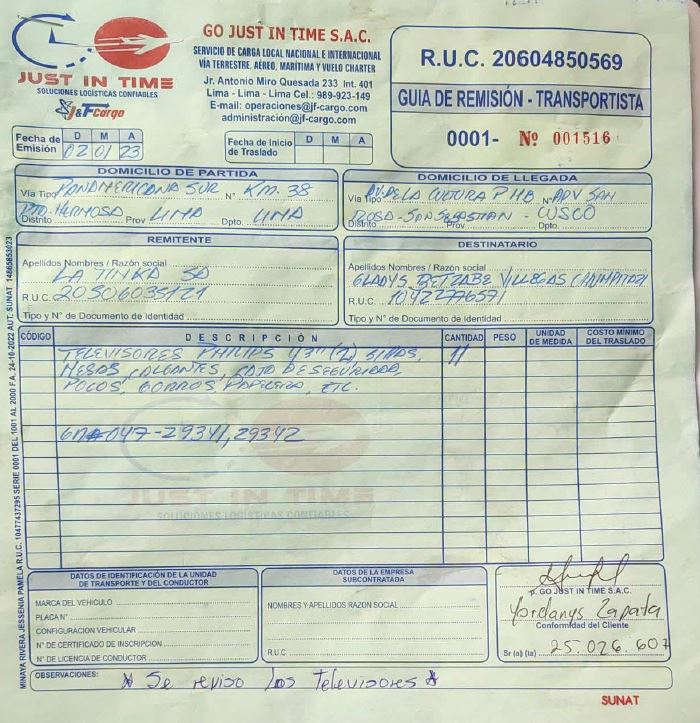 GO JUST IN TIME S.A.C.
SERVICIO DE CARGA LOCAL NACIONAL E INTERNACIONAL
VÍA TERRESTRE, AÉREO, MARÍTIMA Y VUELO CHARTER
Jr. Antonio Miro Quesada 233 Int. 401
Lima - Lima - Lima Cel.: 989-923-149
E-mail: operaciones@jf-cargo.com
administración@jf-cargo.com
JUST IN TIME
SOLUCIONES LOGÍSTICAS CONFIABLES
J&F Cargo
R.U.C. 20604850569
GUIA DE REMISIÓN - TRANSPORTISTA
0001- Nº 001516
Fecha de Emisión D M A
02 01 23
Fecha de Inicio de Traslado D M A
DOMICILIO DE PARTIDA
Vía Tipo PANAMERICANA SUR N° KM. 38
Distrito PTO. HERMOSA Prov LIMA Dpto. LIMA
DOMICILIO DE LLEGADA
Vía Tipo AV. DE LA CULTURA P HB N° APV SAN
Distrito ROSA - SAN SEBASTIAN - Prov CUSCO Dpto.
REMITENTE
Apellidos Nombres / Razón social
LA TINKA SA
R.U.C. 20506035121
Tipo y N° de Documento de Identidad
DESTINATARIO
Apellidos Nombres / Razón social
GLADYS BETZABE VILLEGAS
R.U.C.
Tipo y N° de Documento de Identidad
CÓDIGO DESCRIPCIÓN CANTIDAD PESO UNIDAD DE MEDIDA COSTO MÍNIMO DEL TRASLADO
TELEVISORES PHILIPS 43" (2) SILLAS, 11
MESAS, COLGANTES, CAJA DE SEGURIDAD,
POLOS, GORROS, PAPELERA, ETC.
047-29341, 29342
JUST IN TIME
SOLUCIONES LOGÍSTICAS CONFIABLES
DATOS DE IDENTIFICACIÓN DE LA UNIDAD DE TRANSPORTE Y DEL CONDUCTOR
MARCA DEL VEHICULO
PLACA N°
CONFIGURACIÓN VEHICULAR
N° DE CERTIFICADO DE INSCRIPCION
N° DE LICENCIA DE CONDUCTOR
DATOS DE LA EMPRESA SUBCONTRATADA
NOMBRES Y APELLIDOS RAZON SOCIAL
R.U.C.
p. GO JUST IN TIME S.A.C.
Yordanys Zapata
Conformidad del Cliente
Sr (a) (ta) 25.026.607
OBSERVACIONES: * Se reviso los televisores *
SUNAT
MINAYA RIVERA JESSENIA PAMELA R.U.C. 10477437295 SERIE 0001 DEL 1001 AL 2000 F.A. 24-10-2022 AUT. SUNAT 14865853023